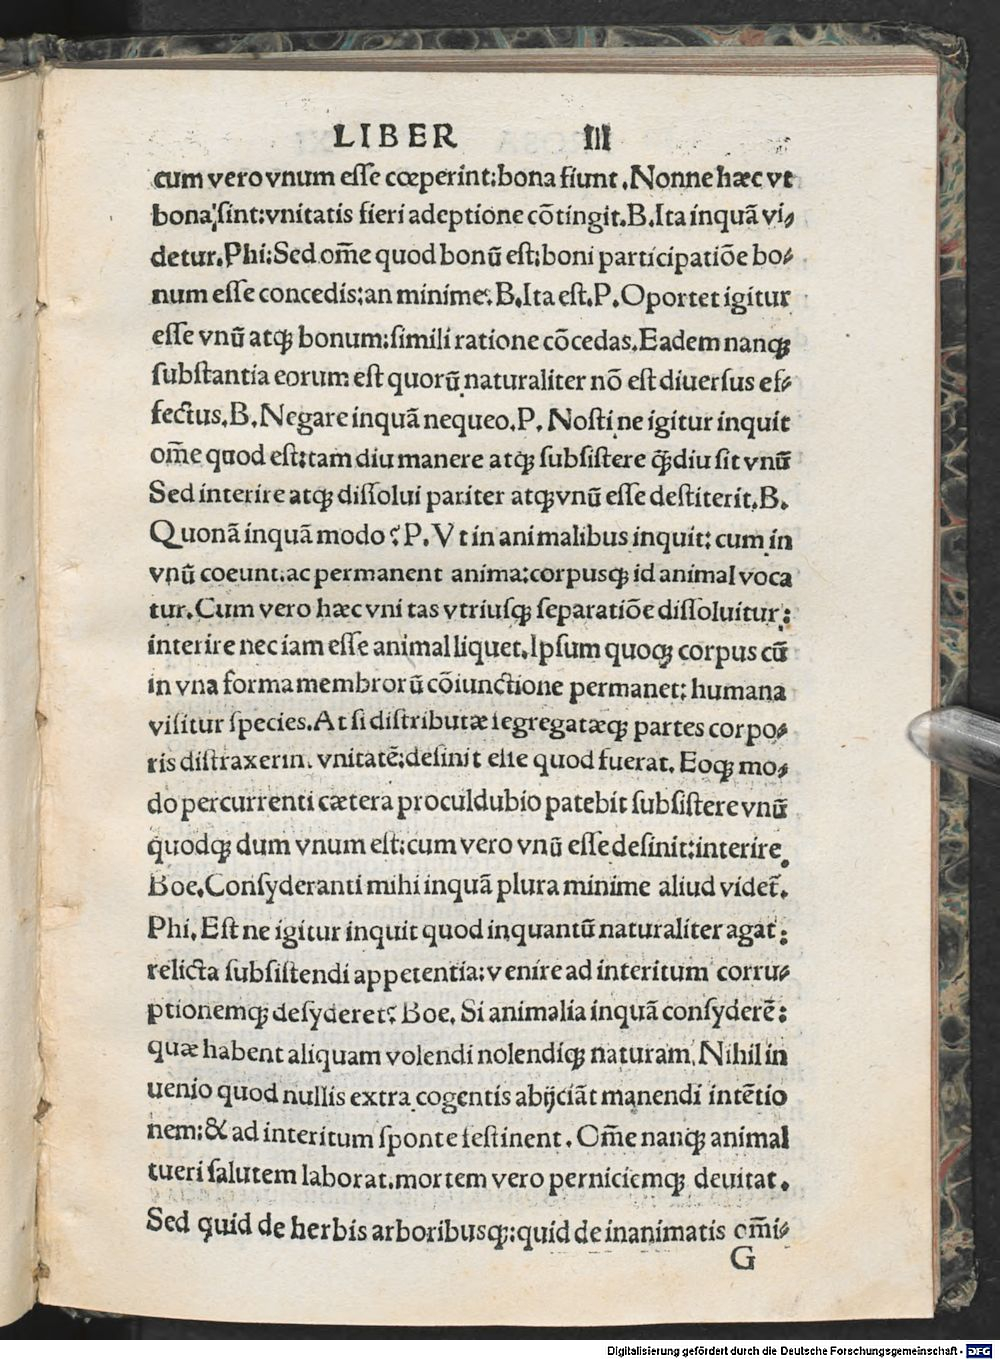 LIBER III
cum vero vnum esse cœperint:bona fiunt.Nonne hæc vt
bona sint:vnitatis fieri adeptione cōtingit.B.Ita inquā vi⸗
detur.Phi:Sed om̄e quod bonū est:boni participatiōe bo⸗
num esse concedis:an minime? B.Ita est.P.Oportet igitur
esse vnū atqꝫ bonum:simili ratione cōcedas.Eadem nanqꝫ
substantia eorum est quorū naturaliter nō est diuersus ef⸗
fectus.B.Negare inquā nequeo.P. Nosti ne igitur inquit
om̄e quod est:tam diu manere atqꝫ subsistere q̄ꝫdiu sit vnū
Sed interire atqꝫ dissolui pariter atqꝫ vnū esse destiterit.B.
Quonā inquā modo? P. Vt in animalibus inquit: cum in
vnū coeunt.ac permanent anima:corpusqꝫ id animal voca
tur.Cum vero hæc vni tas vtriusqꝫ separatiōe dissoluitur:
interire nec iam esse animal liquet.Ipsum quoqꝫ corpus cū
in vna forma membrorū cōiunctione permanet: humana
visitur species.At si distributæ segregatæqꝫ partes corpo⸗
ris distraxerin. vnitatē:desinit esse quod fuerat. Eoqꝫ mo⸗
do percurrenti cætera proculdubio patebit subsistere vnū
quodqꝫ dum vnum est:cum vero vnū esse desinit:interire.
Boe.Consyderanti mihi inquā plura minime aliud videt̄.
Phi. Est ne igitur inquit quod inquantū naturaliter agat:
relicta subsistendi appetentia:venire ad interitum corru⸗
ptionemqꝫ desyderet? Boe. Si animalia inquā consyderē:
quæ habent aliquam volendi nolendiqꝫ naturam. Nihil in
uenio quod nullis extra cogentis abijciāt manendi intētio
nem:& ad interitum sponte festinent. Om̄e nanqꝫ animal
tueri salutem laborat.mortem vero perniciemqꝫ deuitat.
Sed quid de herbis arboribusqꝫ:quid de inanimatis om̄i⸗
G
Digitalisierung gefördert durch die Deutsche Forschungsgemeinschaft - DFG